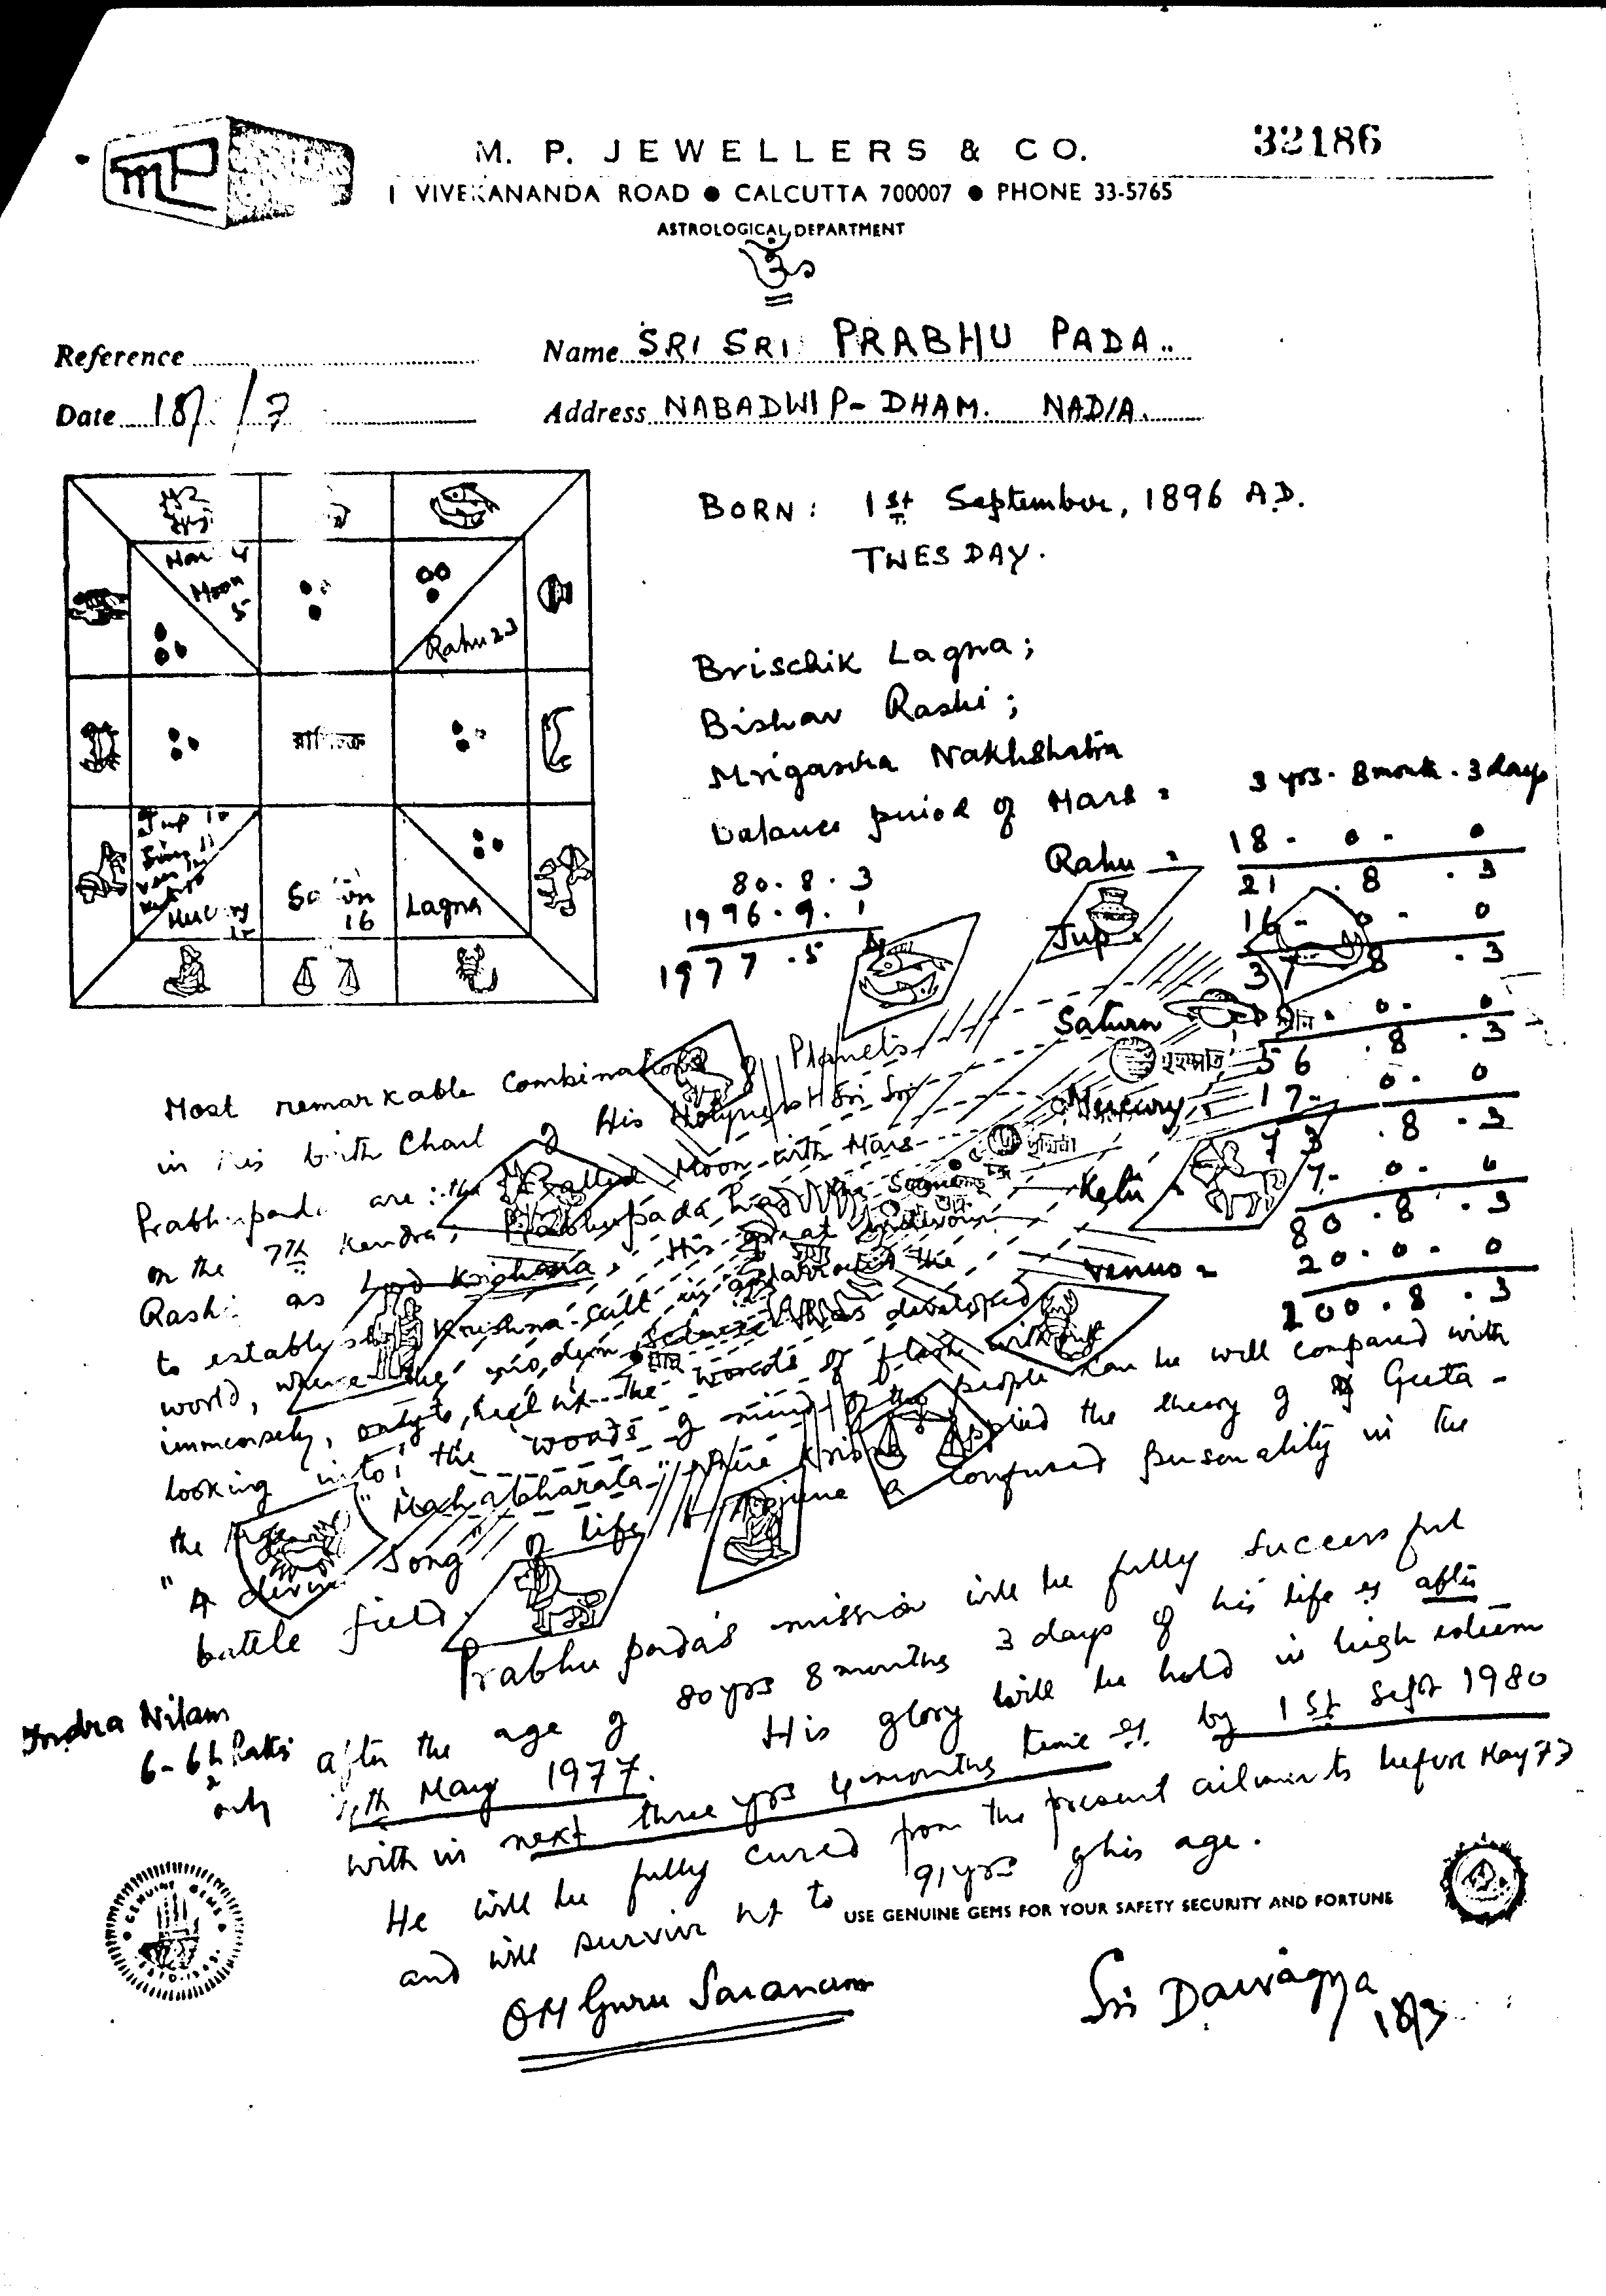 32186
M. P. JEWELLERS & CO.
1 VIVEKANANDA ROAD ● CALCUTTA 700007 ● PHONE 33-5765
ASTROLOGICAL DEPARTMENT
ॐ
Reference
Name SRI SRI PRABHU PADA..
Date 18/ /7
Address NABADWIP-DHAM. NADIA.
BORN: 1st September, 1896 A.D.
TWESDAY.
Moon
5
Rahu 23
রাশিচক্র
Jup
Mercury
16
Lagna
Brischik Lagna;
Bishav Rashi;
Nakhshatra
balance period of Mars = 3 yrs. 8 month. 3 days
Rahu = 18 - 0 - 0
21 . 8 . 3
Jup 16 - 0 - 0
37 8 . 3
Saturn 0 - 0
শনি
56 . 8 . 3
বৃহস্পতি
Mercury, 17 - 0 - 0
73 . 8 . 3
পৃথিবী
Ketu 7 - 0 - 0
80 . 8 . 3
Venus = 20 . 0 - 0
100 . 8 . 3
80 . 8 . 3
1996 . 9 . 1
1977 . 5
Most remarkable Combination of Planets
in his birth Chart of His Holyness Sri Sri
Prabhupada are: the Exalted Moon with Mars
on the 7th Kendra; Prabhupada had the same
Rashi as Lord Krishana, His great
to establysh Krishna-cult in the
world, where the modern science has developed
immensely, only to the worlds of flesh without
looking into the words of mind of the people can be well compared with
the "Mahabharata" where Krishna applied the theory of Geeta -
"A divine Song of life" to Arjune a confused personality in the
battle field.
Prabhu pada's mission will be fully successful
after the age of 80 yrs 8 months 3 days of his life after
May 1977. His glory will be hold in high esteem
with in next three yrs 4 months time by 1st Sept 1980
He will be fully cured from the present ailments before May 77
and will survive to 91 yrs of his age.
Indra Nilam
6-6½ Ratis
only
GENUINE GEMS
USE GENUINE GEMS FOR YOUR SAFETY SECURITY AND FORTUNE
OM Guru Saranam
Sri Daivagya
18/3